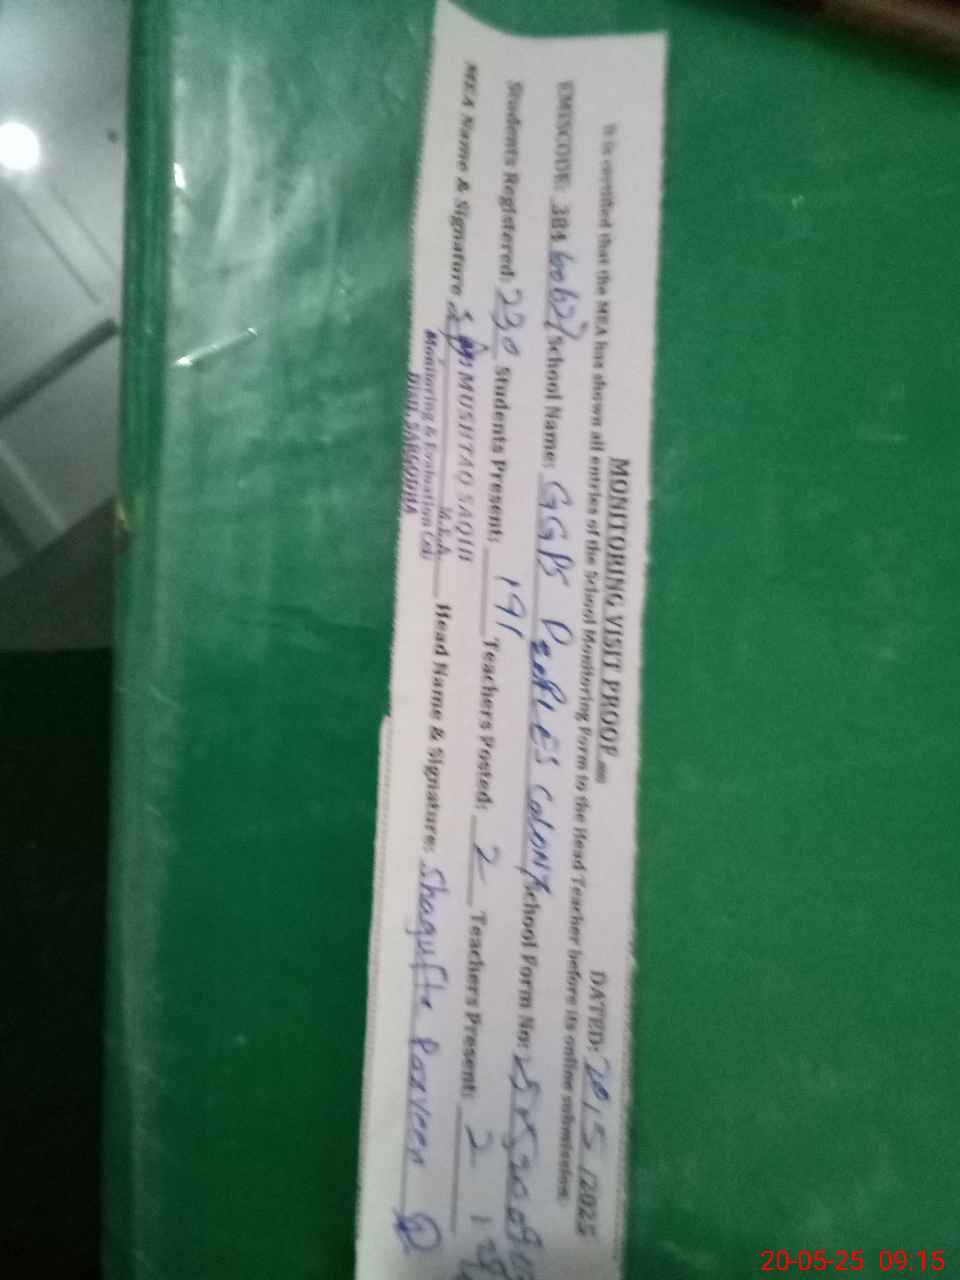 MONITORING VISIT PROOF
DATED: 20/5/2025
It is certified that the MEA has shown all entries of the School Monitoring Form to the Head Teacher before its online submission.
EMISCODE: 384 School Name: GGPS PEOPLES COLONY School Form No:
Students Registered: 230 Students Present: 191 Teachers Posted: 2 Teachers Present: 2
MEA Name & Signature MUSHTAQ SAQIB Head Name & Signature: Shagufta Parveen
M.E.A
Monitoring & Evaluation Cell
Distt. SARGODHA
20-05-25 09:15